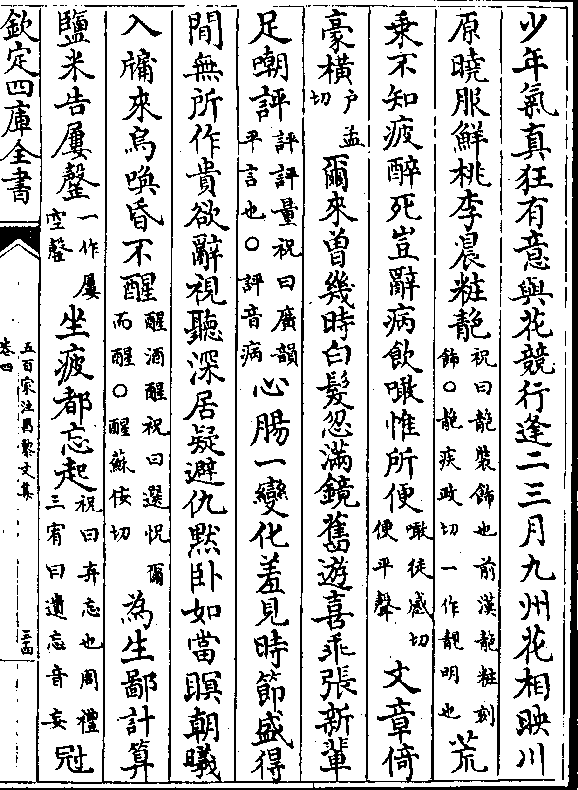 少年氣真狂有意與花競行逢二三月九州花相映川
原曉服鮮桃李晨粧靘祝曰靘裝飾也前漢靘粧刻飾○靘疾政切一作靚明也荒
乗不知疲醉死豈辭病飲噉惟所便噉徒感切便平聲文章倚
豪橫户孟切爾來曾幾時白髮忽滿鏡舊遊喜乖張新輩
足嘲評評評量祝曰廣韻平言也○評音病心腸一變化羞見時節盛得
間無所作貴欲辭視聽深居疑避仇默卧如當暝朝曦
入牖來鳥喚昏不醒醒酒醒祝曰選怳爾而醒○醒蘇佞切為生鄙計算
鹽米告屢罄一作屢空罄坐疲都忘起祝曰弃忘也周禮三宥曰遺忘音妄冠
欽定四庫全書
五百家注昌黎文集
卷四